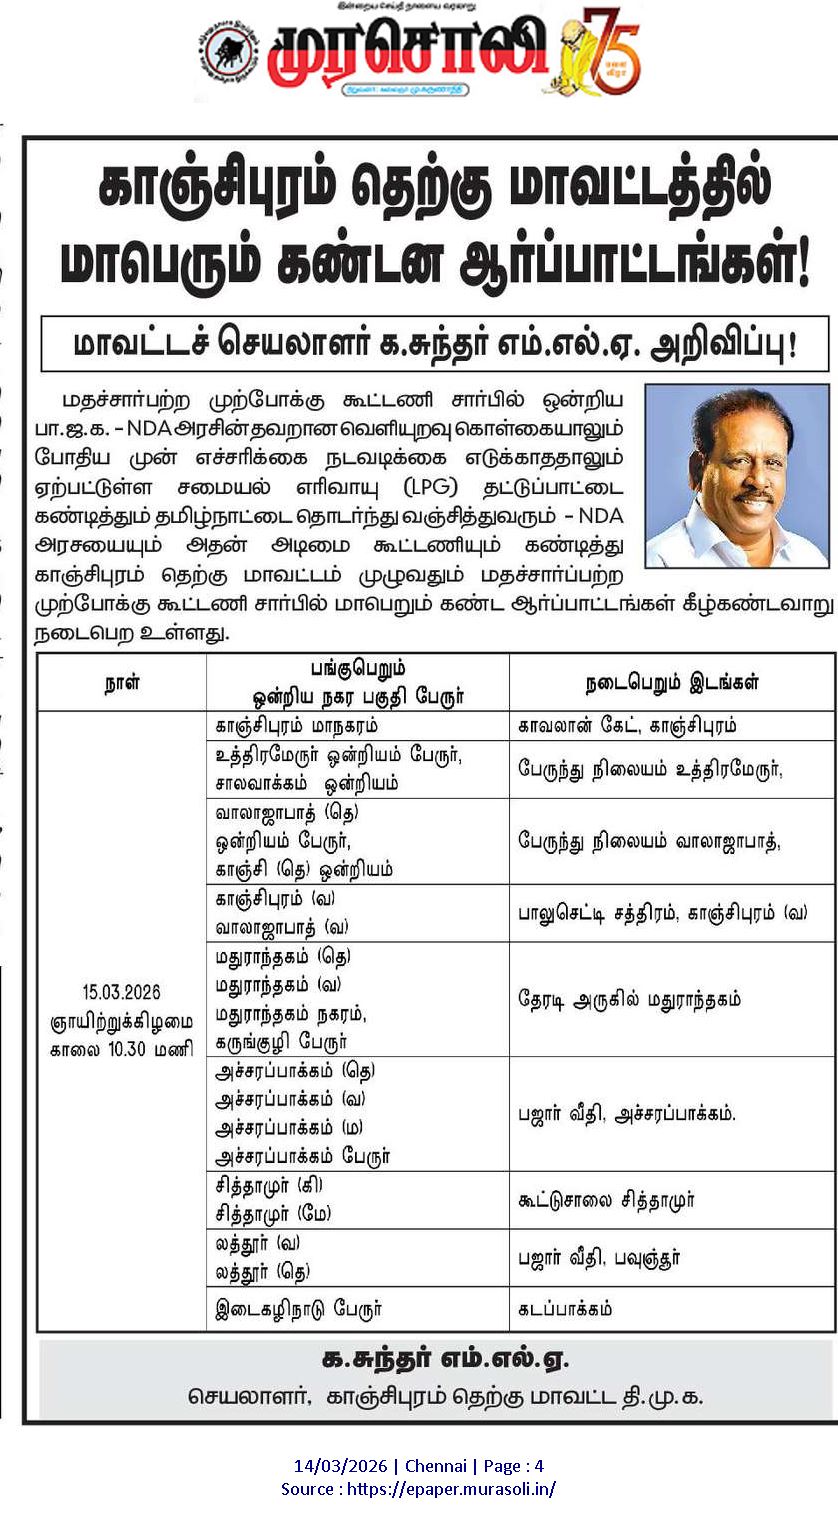 இன்றைய செய்தி நாளைய வரலாறு
முரசொலி
நிறுவனர் : கலைஞர் மு.கருணாநிதி
75
பவள விழா
காஞ்சிபுரம் தெற்கு மாவட்டத்தில்
மாபெரும் கண்டன ஆர்ப்பாட்டங்கள்!
மாவட்டச் செயலாளர் க.சுந்தர் எம்.எல்.ஏ. அறிவிப்பு!
மதச்சார்பற்ற முற்போக்கு கூட்டணி சார்பில் ஒன்றிய
பா.ஜ.க. – NDA அரசின் தவறான வெளியுறவு கொள்கையாலும்
போதிய முன் எச்சரிக்கை நடவடிக்கை எடுக்காததாலும்
ஏற்பட்டுள்ள சமையல் எரிவாயு (LPG) தட்டுப்பாட்டை
கண்டித்தும் தமிழ்நாட்டை தொடர்ந்து வஞ்சித்துவரும் – NDA
அரசயையும் அதன் அடிமை கூட்டணியும் கண்டித்து
காஞ்சிபுரம் தெற்கு மாவட்டம் முழுவதும் மதச்சார்ப்பற்ற
முற்போக்கு கூட்டணி சார்பில் மாபெறும் கண்ட ஆர்ப்பாட்டங்கள் கீழ்கண்டவாறு
நடைபெற உள்ளது.
நாள்
பங்குபெறும்
ஒன்றிய நகர பகுதி பேரூர்
நடைபெறும் இடங்கள்
15.03.2026
ஞாயிற்றுக்கிழமை
காலை 10.30 மணி
காஞ்சிபுரம் மாநகரம்
காவலான் கேட், காஞ்சிபுரம்
உத்திரமேரூர் ஒன்றியம் பேரூர்,
சாலவாக்கம் ஒன்றியம்
பேருந்து நிலையம் உத்திரமேரூர்,
வாலாஜாபாத் (தெ)
ஒன்றியம் பேரூர்,
காஞ்சி (தெ) ஒன்றியம்
பேருந்து நிலையம் வாலாஜாபாத்,
காஞ்சிபுரம் (வ)
வாலாஜாபாத் (வ)
பாலுசெட்டி சத்திரம், காஞ்சிபுரம் (வ)
மதுராந்தகம் (தெ)
மதுராந்தகம் (வ)
மதுராந்தகம் நகரம்,
கருங்குழி பேரூர்
தேரடி அருகில் மதுராந்தகம்
அச்சரப்பாக்கம் (தெ)
அச்சரப்பாக்கம் (வ)
அச்சரப்பாக்கம் (ம)
அச்சரப்பாக்கம் பேரூர்
பஜார் வீதி, அச்சரப்பாக்கம்.
சித்தாமுர் (கி)
சித்தாமுர் (மே)
கூட்டுசாலை சித்தாமுர்
லத்தூர் (வ)
லத்தூர் (தெ)
பஜார் வீதி, பவுஞ்சூர்
இடைகழிநாடு பேரூர்
கடப்பாக்கம்
க.சுந்தர் எம்.எல்.ஏ.
செயலாளர், காஞ்சிபுரம் தெற்கு மாவட்ட தி.மு.க.
14/03/2026 | Chennai | Page : 4
Source : https://epaper.murasoli.in/